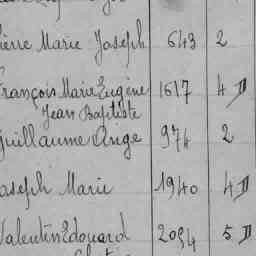 ierre Marie Joseph 643 2
François Marie Eugène 1617 4 D
Jean Baptiste
Guillaume Ange 974 2
Joseph Marie 1940 4 D
Valentin Edouard 2094 5 D